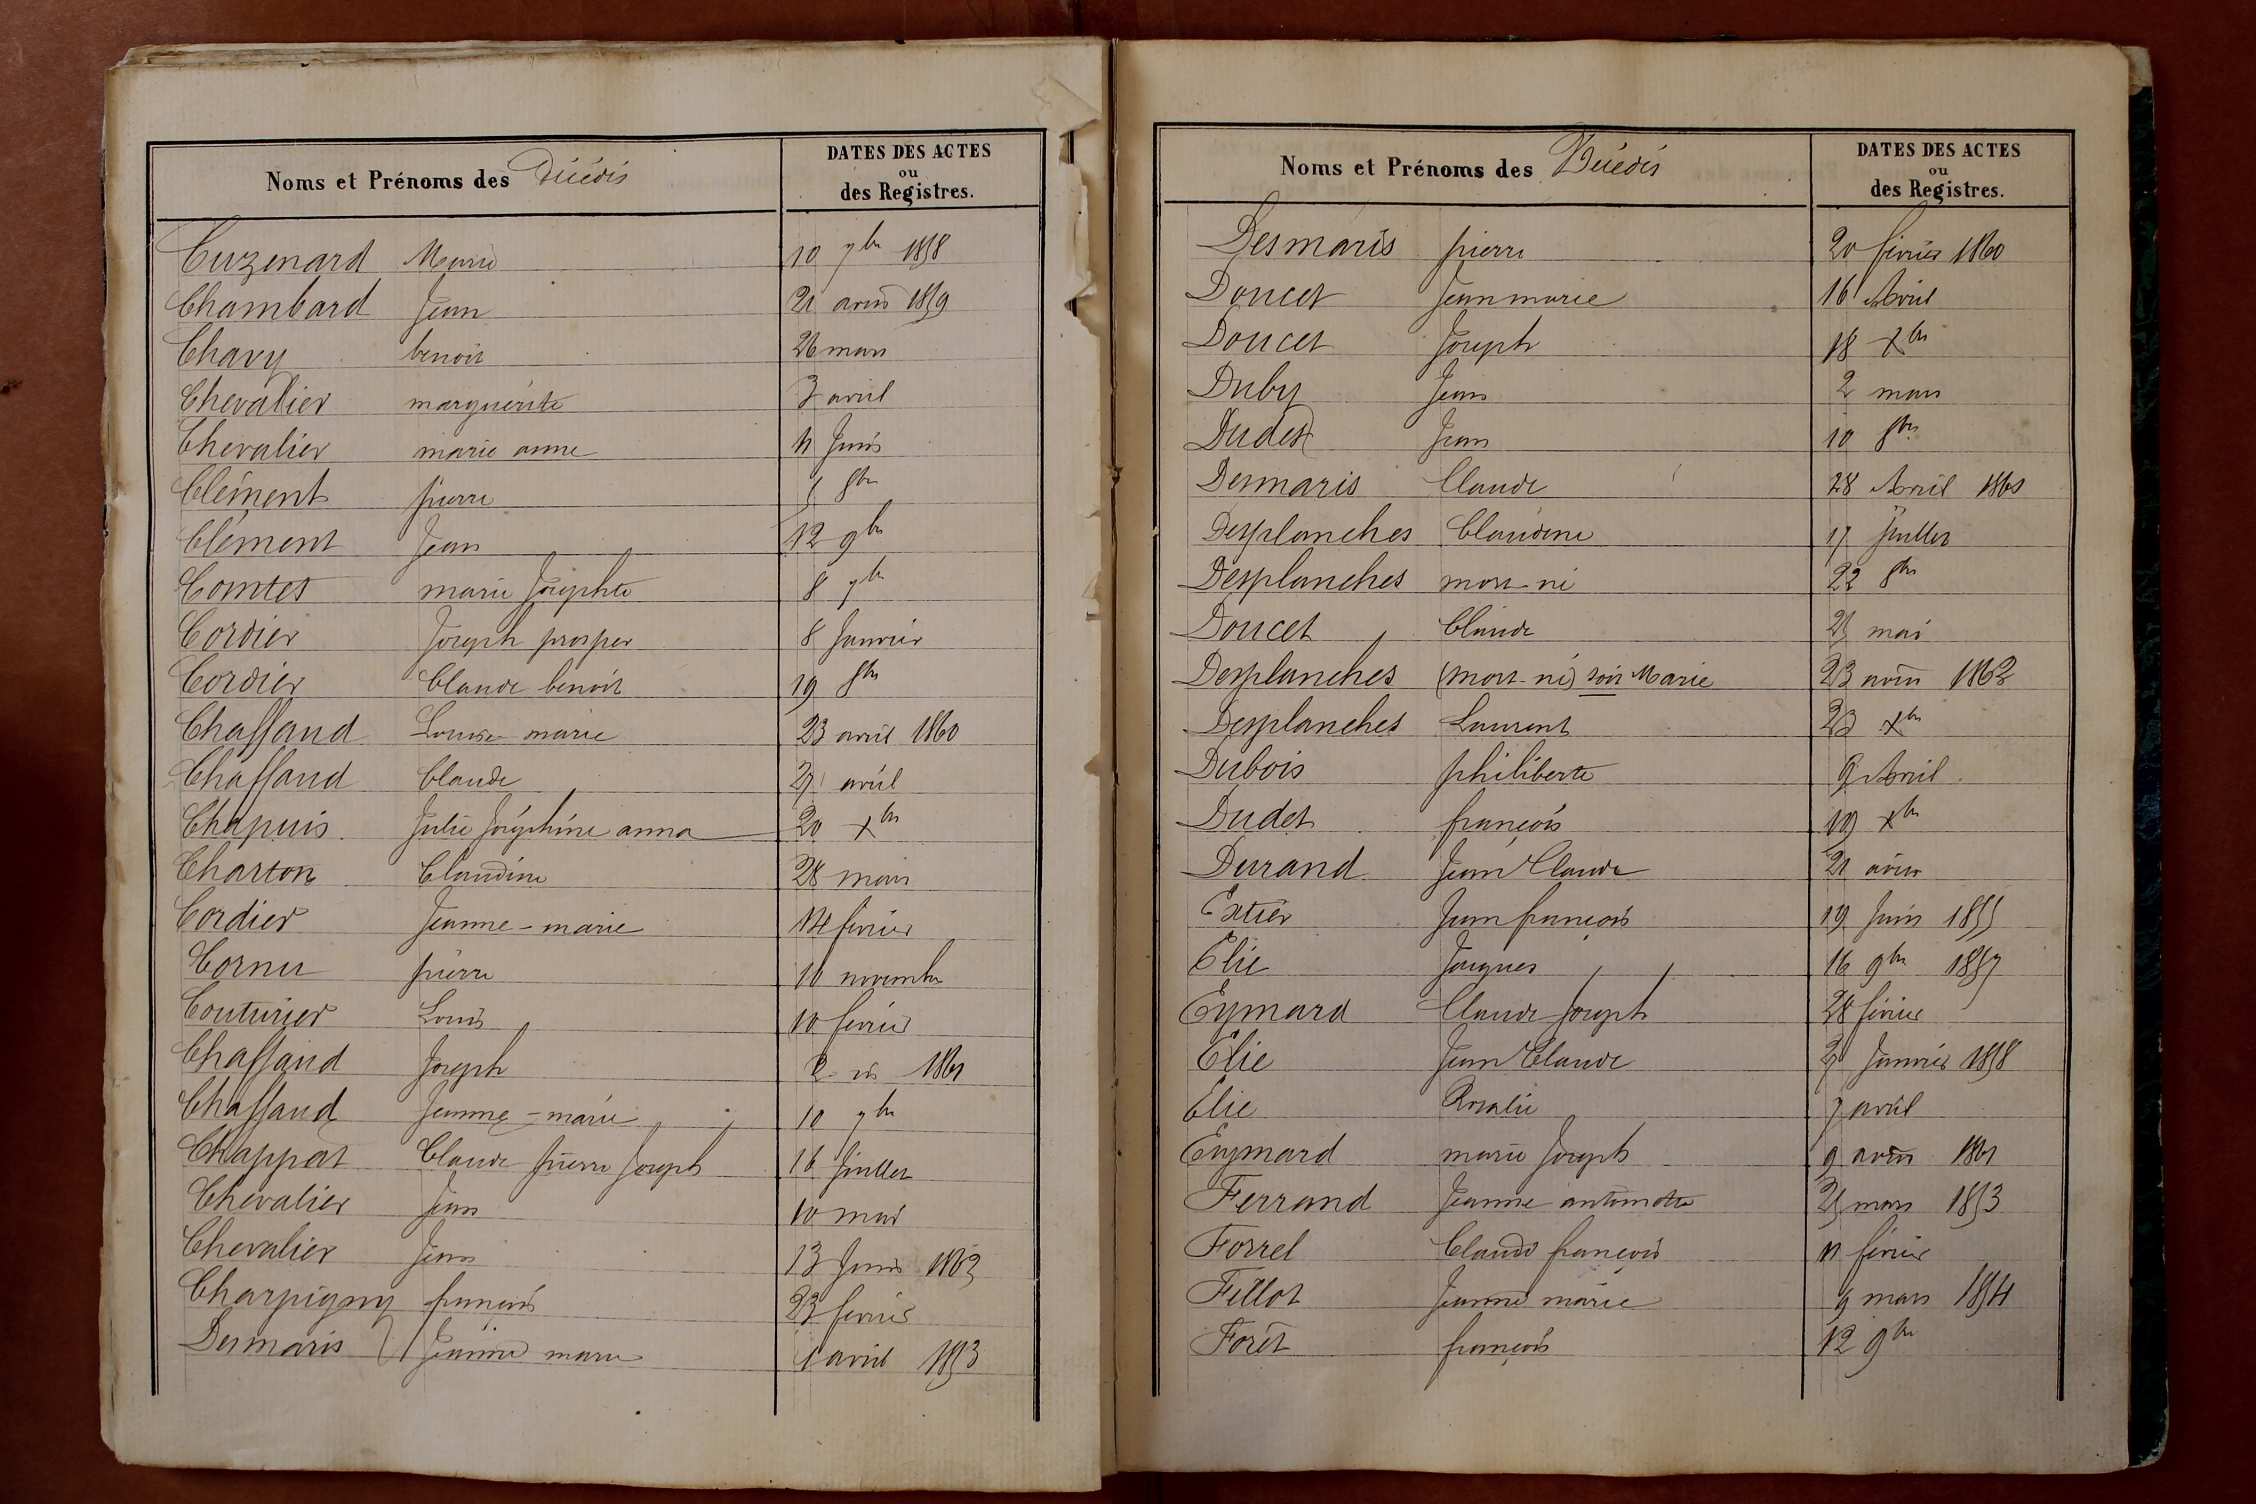 Noms et Prénoms des Décédés
DATES DES ACTES
ou
des Registres.
Cuzenard Marie 10 7bre 1858
Chambard Jean 21 août 1859
Chavy benoit 26 mars
Chevalier marguérite 3 avril
Chevalier marie anne 11 Juin
Clément pierre 8bre
Clément Jean 12 9bre
Comtet marie Josephte 8 7bre
Cordier Joseph prosper 8 Janvier
Cordier Claude benoit 19 8bre
Chaffaud Louise marie 23 avril 1860
Chaffaud Claude 27 avril
Chapuis Julie Joséphine anna 20 xbre
Charton Claudine 28 mars
Cordier Jeanne-marie 14 février
Cornu pierre 10 novembre
Couturier Louis 10 février
Chaffaud Joseph 2 1861
Chaffaud Jeanne-marie 10 7bre
Chappat Claude pierre Joseph 16 Juillet
Chevalier Jean 10 mai
Chevalier Jean 13 Juin 1862
Charpigny françois 23 février
Desmaris Jeanne marie 1 avril 1853
Noms et Prénoms des Décédés
DATES DES ACTES
ou
des Registres.
Desmaris pierre 20 février 1860
Doucet Jean marie 16 Avril
Doucet Joseph 18 xbre
Duby Jean 2 mars
Dudet Jean 10 8bre
Desmaris Claude 28 Avril 1861
Desplanches Claudine 17 Juillet
Desplanches mort-né 22 8bre
Doucet Claude 25 mai
Desplanches (mort-né) soit Marie 23 août 1862
Desplanches Laurent 23 xbre
Dubois philiberte 9 Avril
Dudet françois 19 xbre
Durand Jean Claude 21 août
Extier Jean françois 19 Juin 1855
Elie Jacques 16 9bre 1857
Eymard Claude Joseph 28 février
Elie Jean Claude 2 Janvier 1858
Elie Rosalie 7 avril
Eymard marie Joseph 9 août 1861
Ferrand Jeanne antoinette 25 mars 1853
Forrel Claude françois 11 février
Fillot Jeanne marie 9 mars 1854
Forêt françois 12 9bre